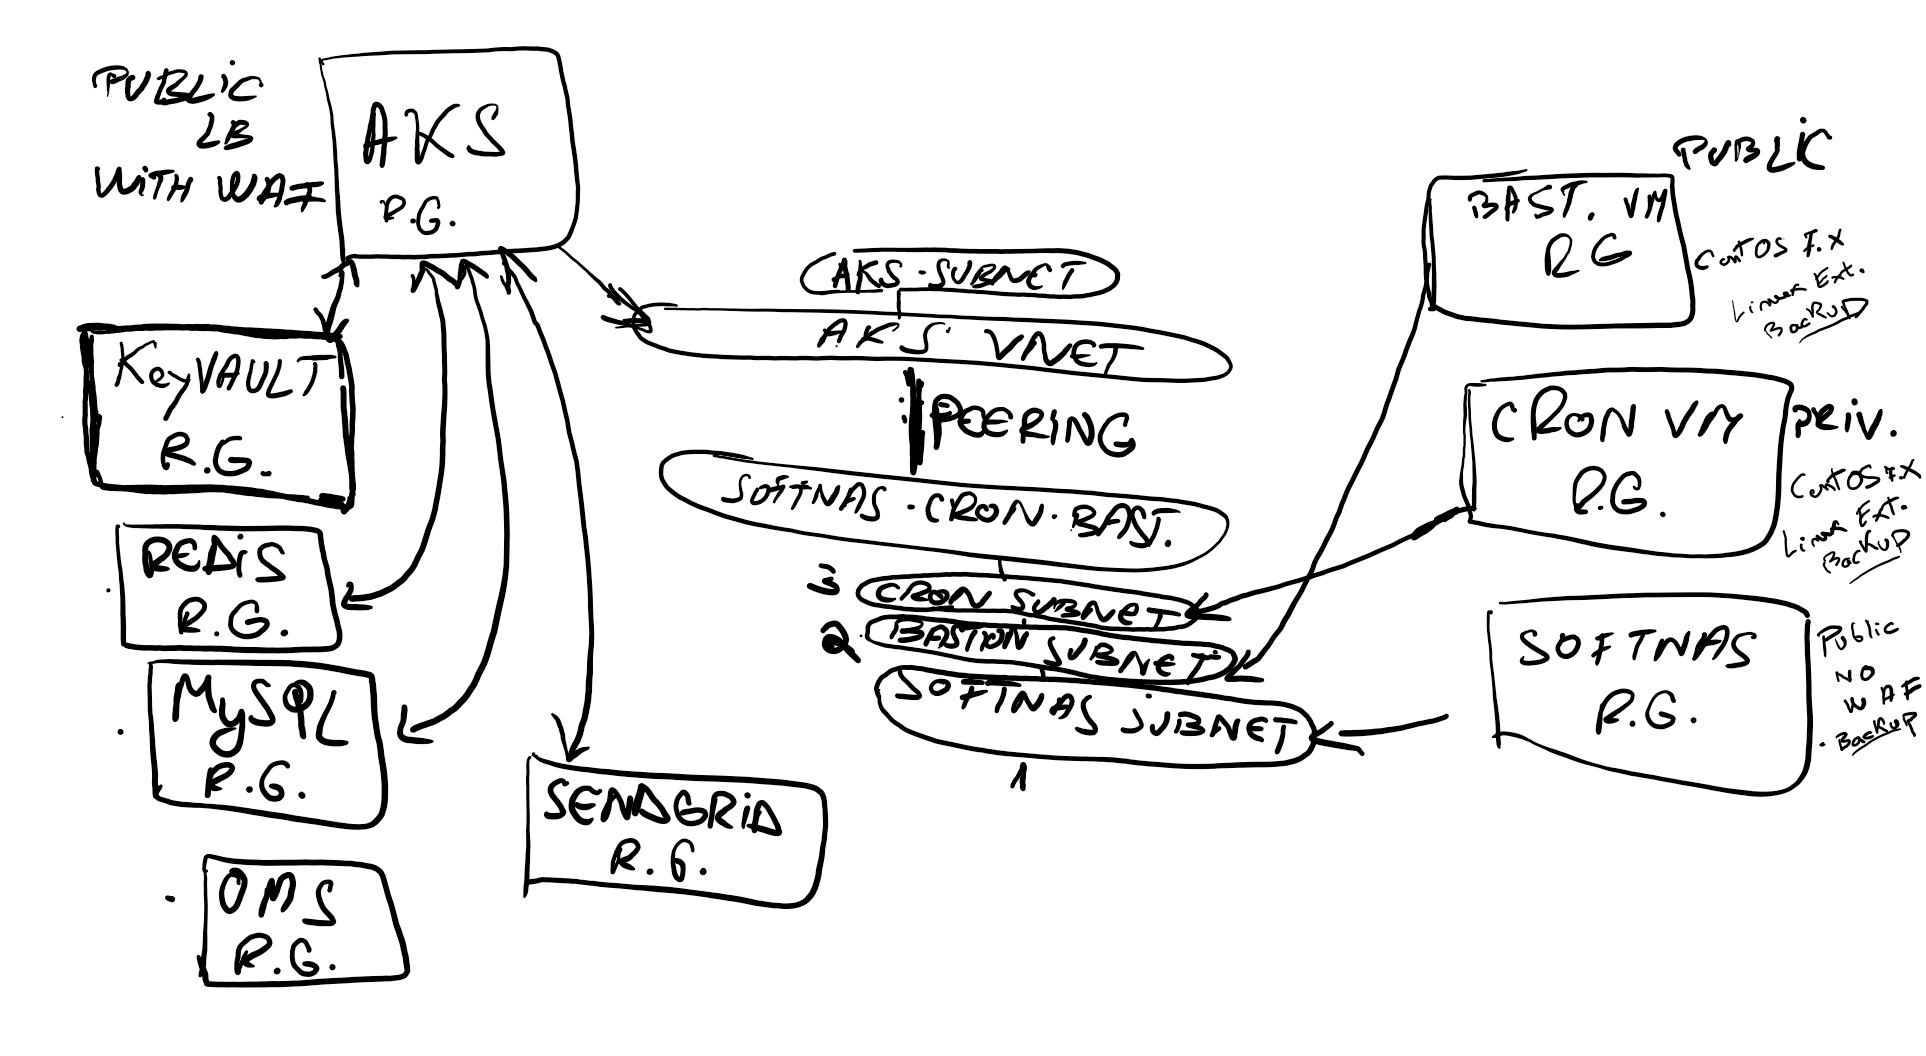 PUBLIC
LB
WITH WAF
AKS
R.G.
KeyVAULT
R.G.
REDIS
R.G.
MySQL
R.G.
OMS
R.G.
SENDGRID
R.G.
AKS-SUBNET
AKS VNET
PEERING
SOFTNAS-CRON-BAST.
3
CRON SUBNET
2
BASTION SUBNET
SOFTNAS SUBNET
1
PUBLIC
BAST. VM
RG
CentOS 7.X
Linux Ext.
BackUP
CRON VM
R.G.
PRIV.
CentOS 7.X
Linux Ext.
BackUP
SOFTNAS
R.G.
Public
NO
WAF
BackUP